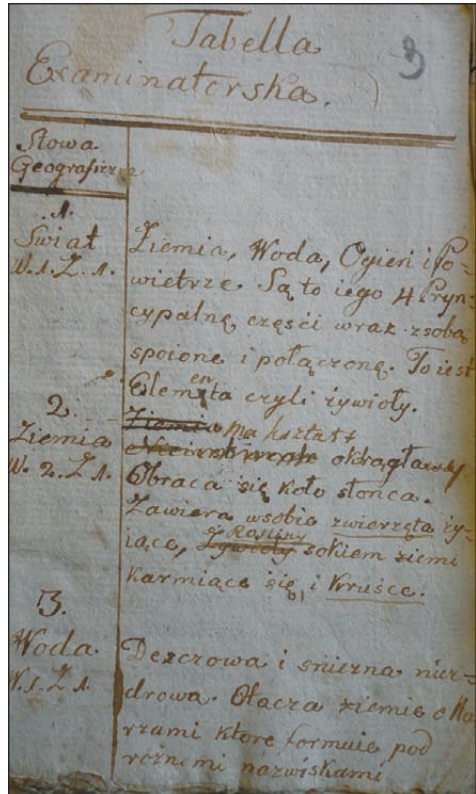 Tabella
3
Examinatorska.
Słowa
Geograficzne
1.
Swiat
W. 1. Z. 1.
Ziemia, Woda, Ogień i Po-
wietrze. Są to iego 4 Pryn-
cypalnę częsci wraz zsobą
spoione i połączonę. To iest
Elementa czyli żywioły.
2.
Ziemia
W. 2. Z. 1.
Ziemia ma kształt
okrągławy.
Obraca się koło słonca.
Zawiera wsobie zwierzęta ży-
iące, Żywioły Rosliny sokiem ziemi
karmiące się, i kruśce.
3.
Woda
W. 1. Z. 1.
Deszczowa i snieżna niez-
drowa. Otacza ziemię o Mo
rzami ktore formuie pod
rożnemi nazwiskami